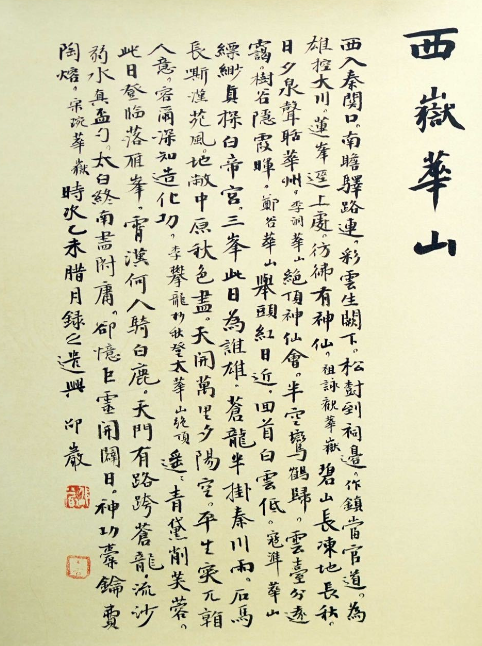 西嶽華山
西入秦關口。南瞻驛路連。彩雲生闕下。松樹到祠邊。作鎮當官道。為
雄控大川。蓮峯逕上處。彷彿有神仙。祖詠觀華嶽 碧山長凍地長秋。
日夕泉聲聒華州。李洞華山 絕頂神仙會。半空鸞鶴歸。雲臺分遠
靄。樹谷隱霞暉。鄭谷華山 舉頭紅日近。回首白雲低。寇準華山
縹緲真探白帝宮。三峯此日為誰雄。蒼龍半掛秦川雨。石馬
長嘶漢苑風。地敞中原秋色盡。天開萬里夕陽空。平生突兀
人意。容爾深知造化功。李攀龍杪秋登太華山絕頂 遥遥青黛削芙蓉。
此日登臨落雁峯。霄漢何人騎白鹿。天門有路跨蒼龍。流沙
弱水真盃勺。太白終南盡附庸。卻憶巨靈開闢日。神功橐鑰費
陶熔。宋琬華嶽 時次乙未腊月錄之遣興 邱巖